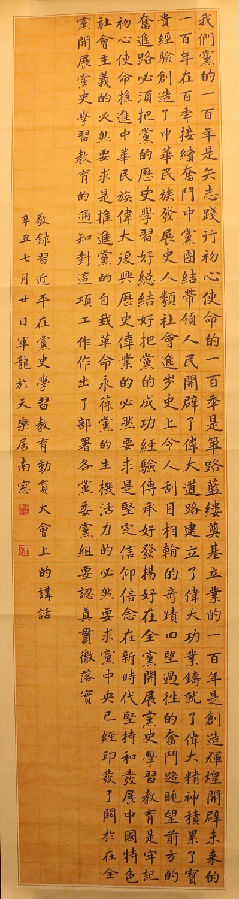 我們黨的一百年是矢志踐行初心使命的一百年是篳路藍縷奠基立業的一百年是創造輝煌開辟未來的
一百年在百年接續奮鬥中黨團結帶領人民開辟了偉大道路建立了偉大功業鑄就了偉大精神積累了寶
貴經驗創造了中華民族發展史人類社會進步史上令人刮目相看的奇蹟回望過往的奮鬥路眺望前方的
奮進路必須把黨的歷史學習好總結好把黨的成功經驗傳承好發揚好在全黨開展黨史學習教育是牢記
初心使命推進中華民族偉大復興歷史偉業的必然要求是堅定信仰信念在新時代堅持和發展中國特色
社會主義的必然要求是推進黨的自我革命永葆黨的生機活力的必然要求黨中央已經印發了關於在全
黨開展黨史學習教育的通知對這項工作作出了部署各黨委黨組要認真貫徹落實
敬錄習近年在黨史學習教育動員大會上的講話
辛丑七月廿日軍龍於天樂居南窓